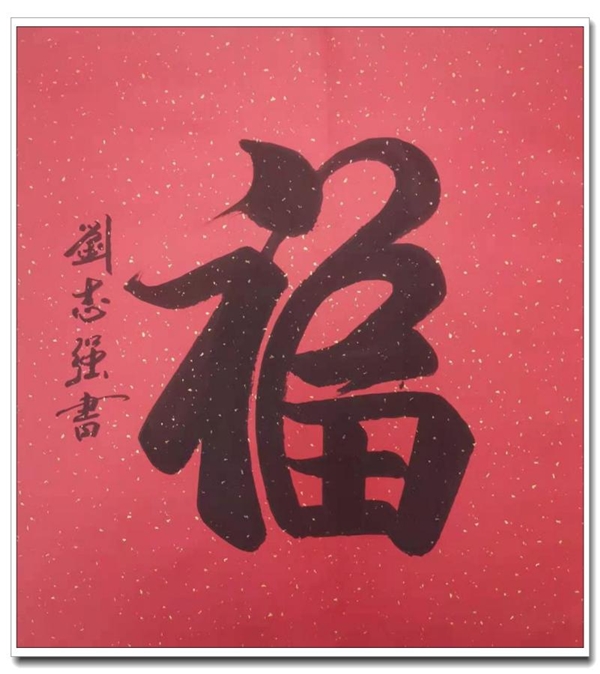 福
劉志強書